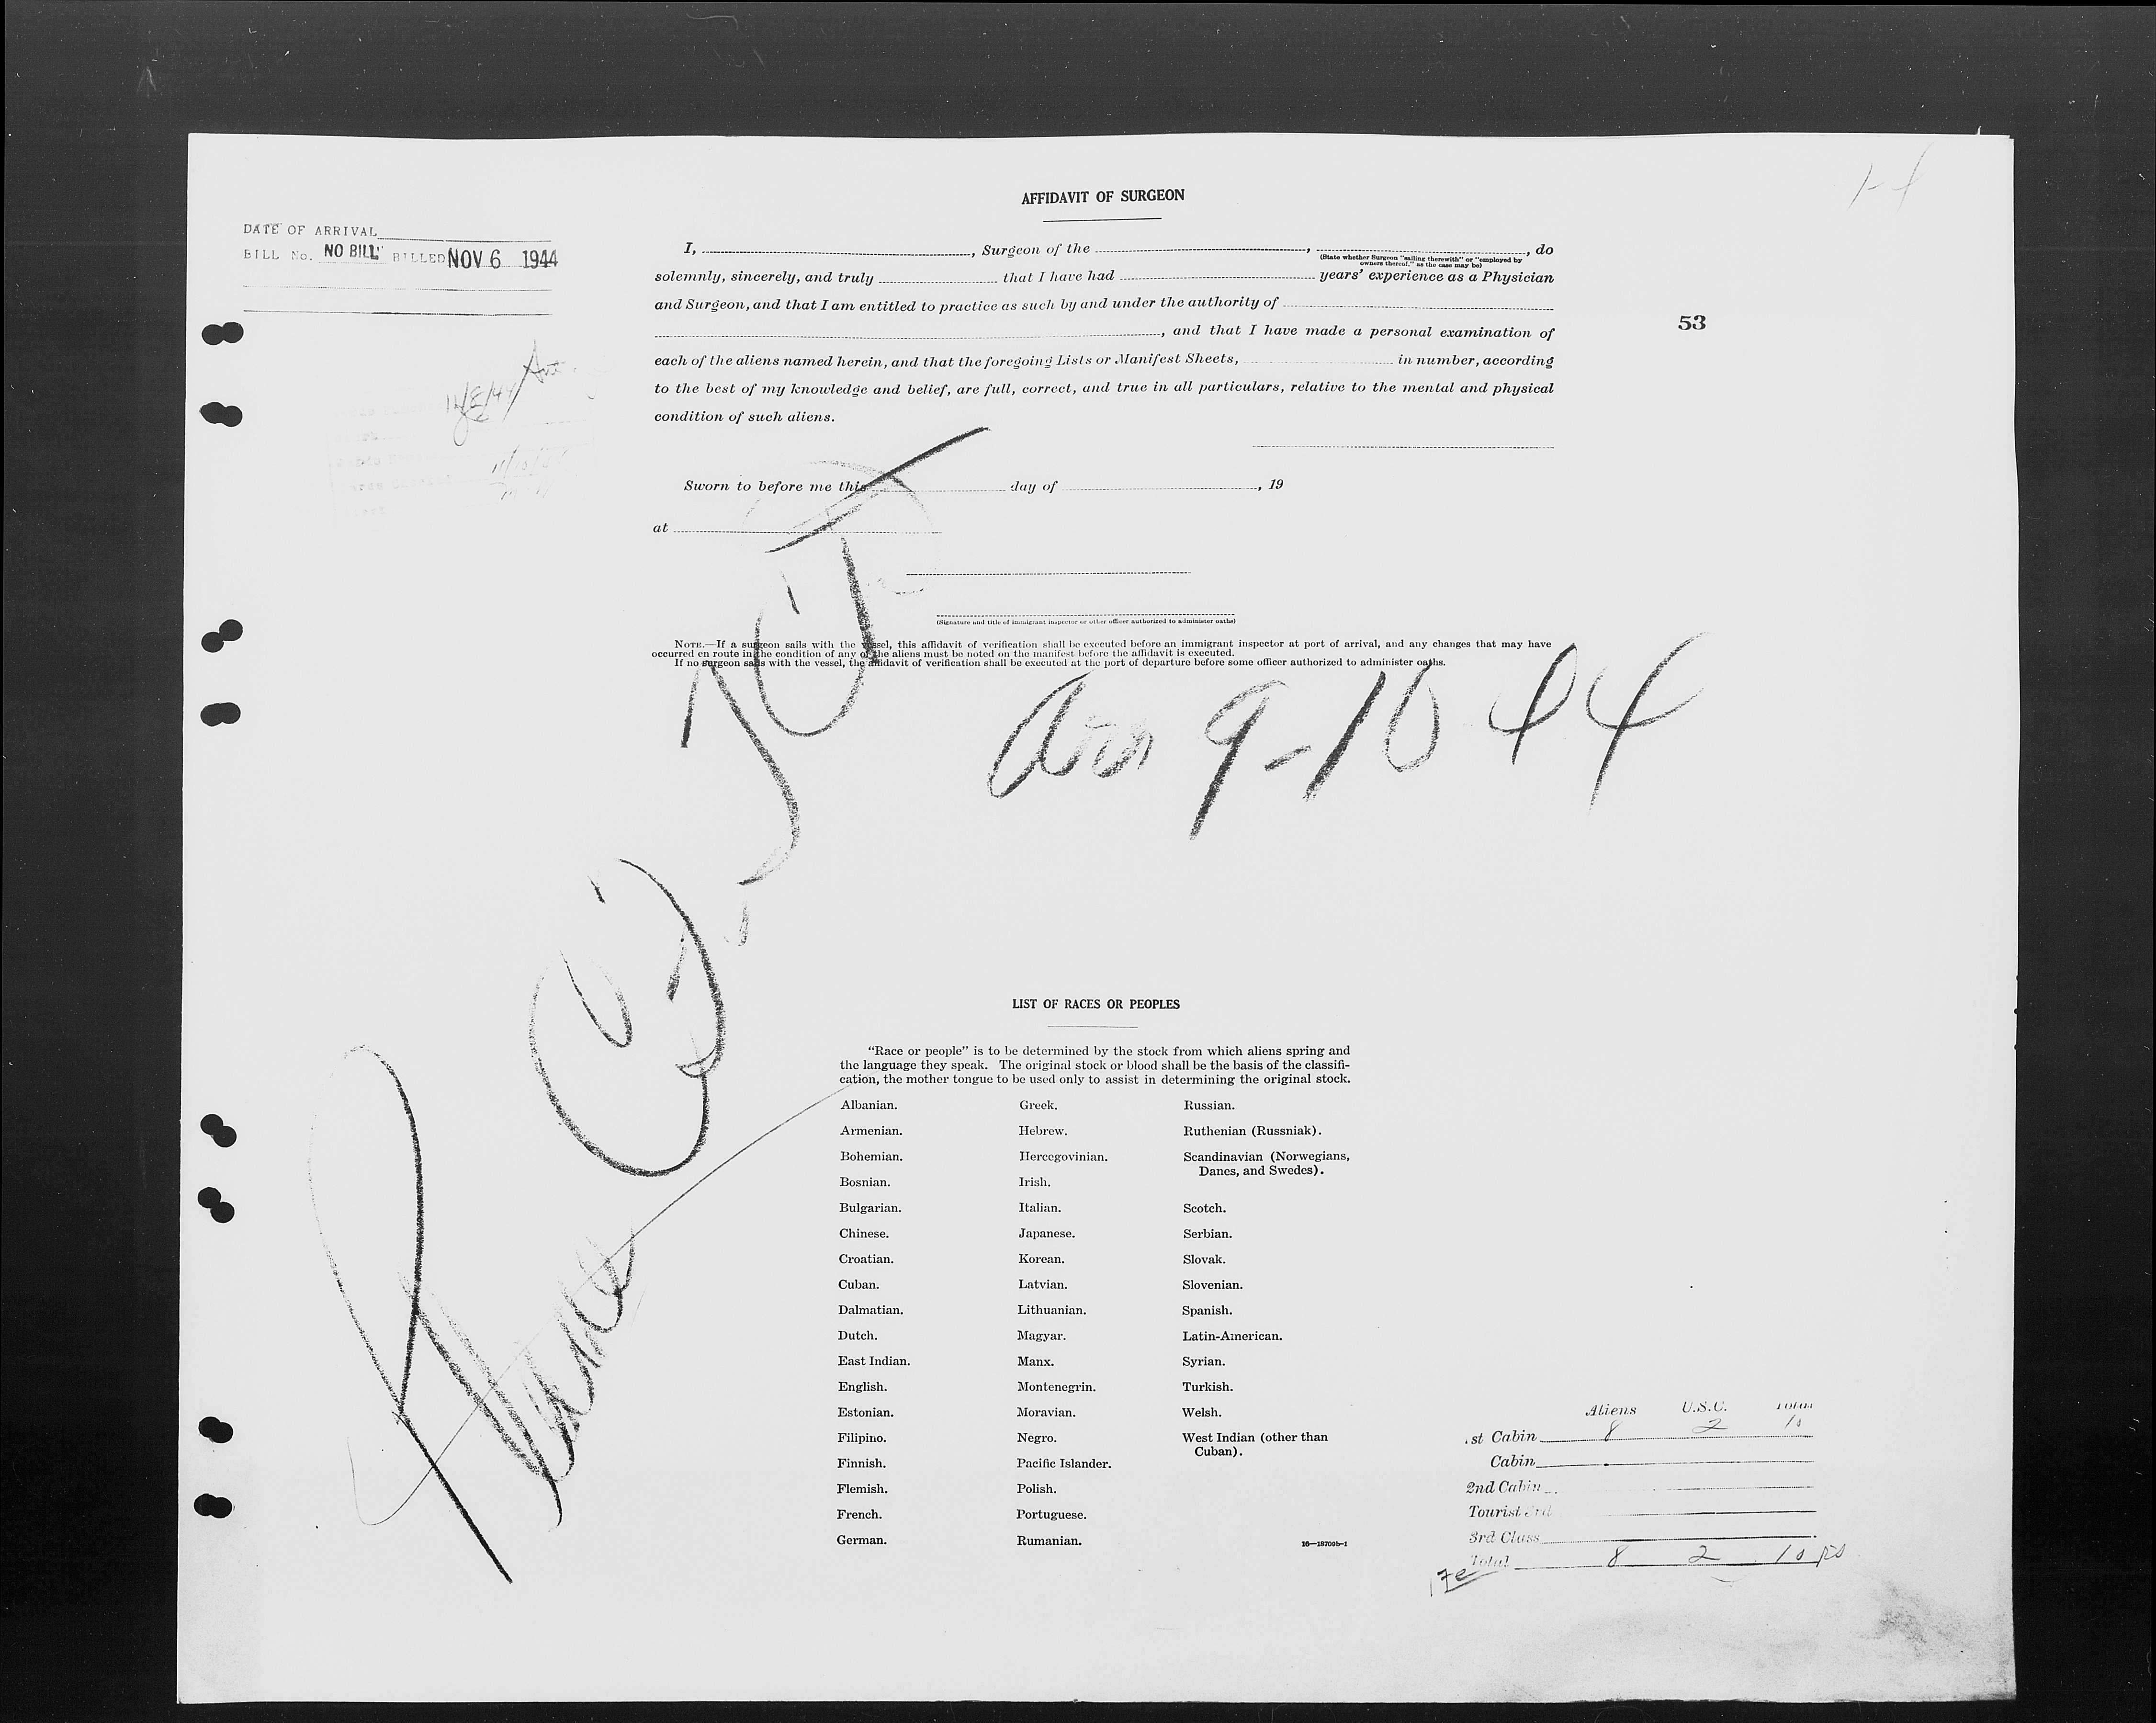 AFFIDAVIT OF SURGEON
DATE OF ARRIVAL
BILL No. NO BILL BILLED NOV 6 1944
I, , Surgeon of the , , do
(State whether Surgeon "sailing therewith" or "employed by
owners thereof," as the case may be)
solemnly, sincerely, and truly that I have had years' experience as a Physician
and Surgeon, and that I am entitled to practice as such by and under the authority of
, and that I have made a personal examination of
53
each of the aliens named herein, and that the foregoing Lists or Manifest Sheets, in number, according
to the best of my knowledge and belief, are full, correct, and true in all particulars, relative to the mental and physical
condition of such aliens.
Sworn to before me this day of , 19
at
(Signature and title of immigrant inspector or other officer authorized to administer oaths)
NOTE.—If a surgeon sails with the vessel, this affidavit of verification shall be executed before an immigrant inspector at port of arrival, and any changes that may have
occurred en route in the condition of any of the aliens must be noted on the manifest before the affidavit is executed.
If no surgeon sails with the vessel, the affidavit of verification shall be executed at the port of departure before some officer authorized to administer oaths.
9-10 44
LIST OF RACES OR PEOPLES
"Race or people" is to be determined by the stock from which aliens spring and
the language they speak. The original stock or blood shall be the basis of the classifi-
cation, the mother tongue to be used only to assist in determining the original stock.
Albanian. Greek. Russian.
Armenian. Hebrew. Ruthenian (Russniak).
Bohemian. Hercegovinian. Scandinavian (Norwegians,
Danes, and Swedes).
Bosnian. Irish.
Bulgarian. Italian. Scotch.
Chinese. Japanese. Serbian.
Croatian. Korean. Slovak.
Cuban. Latvian. Slovenian.
Dalmatian. Lithuanian. Spanish.
Dutch. Magyar. Latin-American.
East Indian. Manx. Syrian.
English. Montenegrin. Turkish.
Estonian. Moravian. Welsh.
Filipino. Negro. West Indian (other than
Cuban).
Finnish. Pacific Islander.
Flemish. Polish.
French. Portuguese.
German. Rumanian.
16—18709b-1
Aliens U.S.C. Total
1st Cabin 8 2 10
Cabin
2nd Cabin
Tourist 3rd
3rd Class
Total 8 2 10